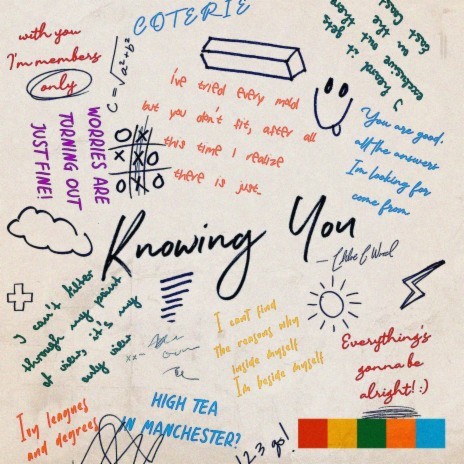 COTERIE
with you
I'm members
only
C = √a²+b²
WORRIES ARE
TURNING OUT
JUST FINE!
O X
X X O
O X O
I've tried every mold
but you don't fit, after all
this time I realize
there is just..
I heard it gets
exclusive out there
on the
East Coast
You are good.
all the answers
I'm looking for
come from
Knowing You
I can't filter
through my point
of view, it's my
only view
I can't find
The reasons why
inside myself
I'm beside myself
Everything's
gonna be
alright! :)
Ivy leagues
and degrees
HIGH TEA
IN MANCHESTER?
1 2 3 go!